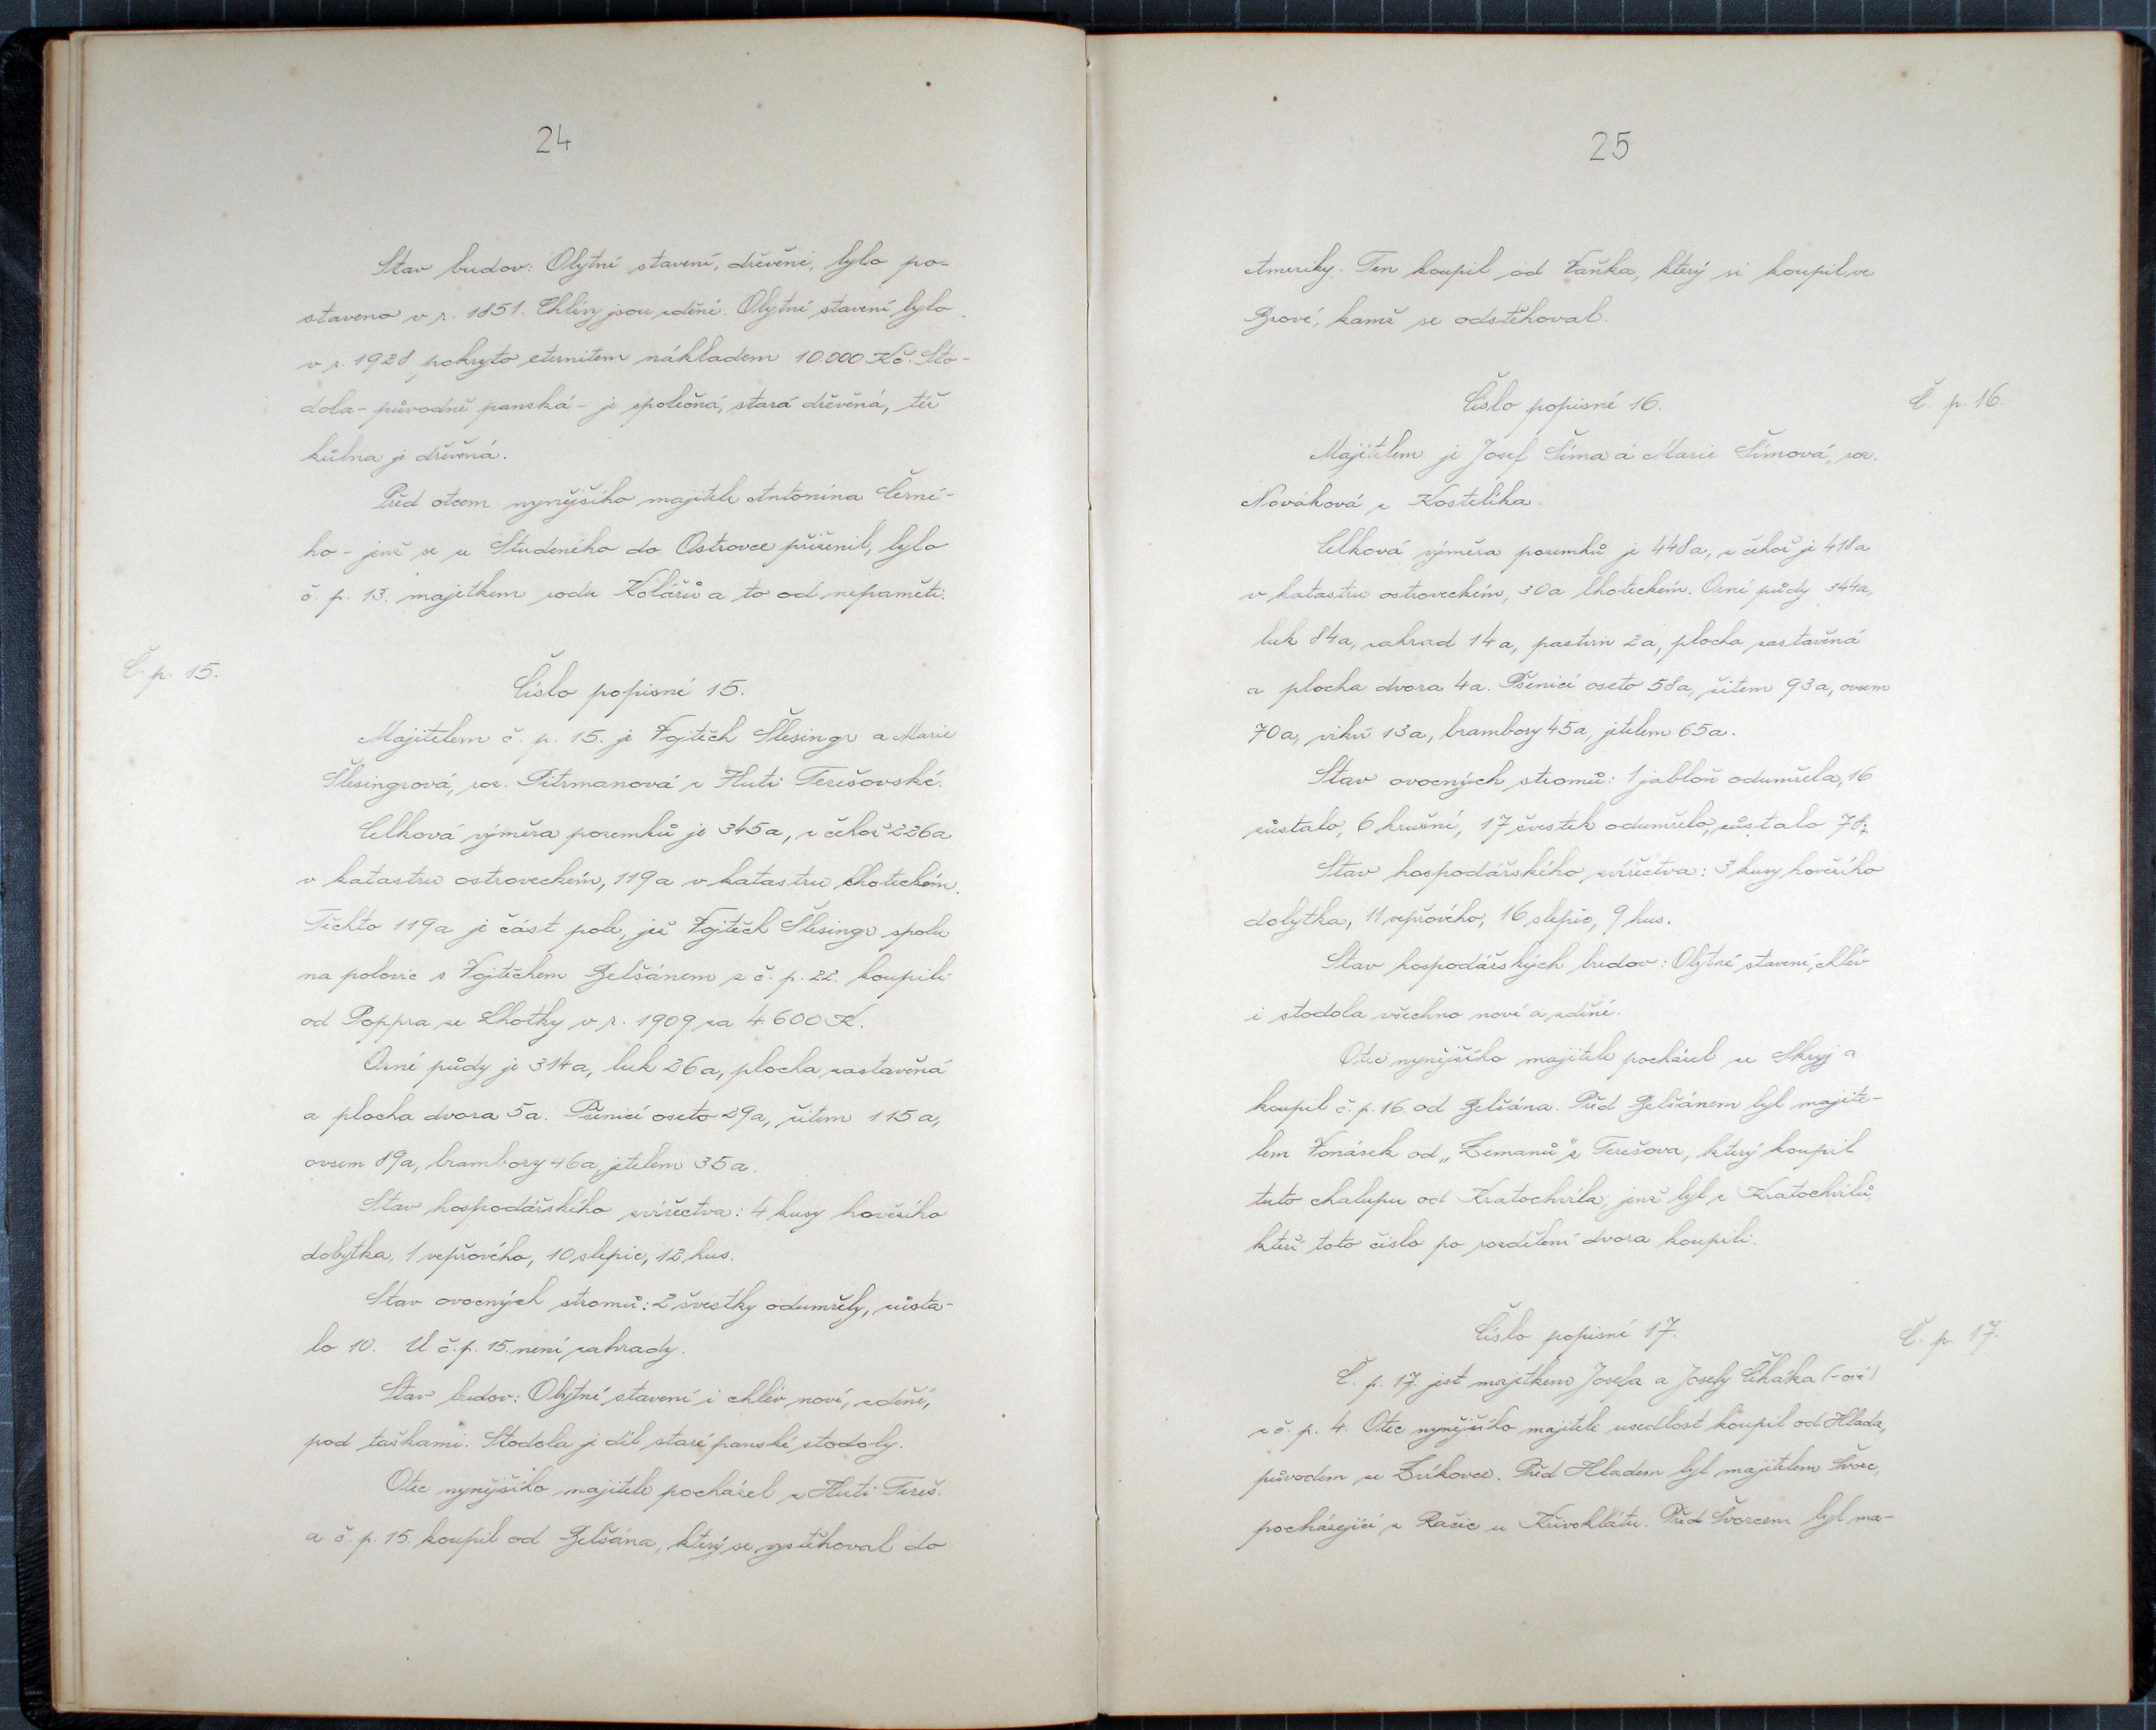 24
Stav budov: Obytné stavení, dřevěné, bylo po-
staveno v r. 1851. Chlévy jsou zděné. Obytné stavení bylo
v r. 1928 pokryto eternitem nákladem 10.000 Kč. Sto-
dola - původně panská - je společná, stará dřevěná, též
kůlna je dřevěná.
Před otcem nynějšího majitele Antonína Černé-
ho - jenž se ze Studeného do Ostrovce přiženil, bylo
č. p. 13. majetkem rodu Kolářů a to od nepaměti.
Č. p. 15.
Číslo popisné 15.
Majitelem č. p. 15. je Vojtěch Šlesingr a Marie
Šlesingrová, roz. Pitrmanová z Huti Terešovské.
Celková výměra pozemků je 345a, z čehož 226a
v katastru ostroveckém, 119a v katastru lhoteckém.
Těchto 119a je část pole, jež Vojtěch Šlesingr spolu
na polovic s Vojtěchem Belšánem z č. p. 22. koupili
od Poppra ze Lhotky v r. 1909 za 4.600 K.
Orné půdy je 314a, luk 26a, plocha zastavěná
a plocha dvora 5a. Pšenicí oseto 29a, žitem 115a,
ovsem 89a, brambory 46a, jetelem 35a.
Stav hospodářského zvířectva: 4 kusy hovězího
dobytka, 1 vepřového, 10 slepic, 12 hus.
Stav ovocných stromů: 2 švestky odumřely, zůsta-
lo 10. U č. p. 15. není zahrady.
Stav budov: Obytné stavení i chlév nové, zděné,
pod taškami. Stodola je díl staré panské stodoly.
Otec nynějšího majitele pocházel z Huti Tereš.
a č. p. 15. koupil od Belšána, který se vystěhoval do
25
Ameriky. Ten koupil od Vaňka, který si koupil ve
Brově, kamž se odstěhoval.
Číslo popisné 16.
Č. p. 16.
Majitelem je Josef Šíma a Marie Šímová, roz.
Nováková z Kostelíka.
Celková výměra pozemků je 448a, z čehož je 418a
v katastru ostroveckém, 30a lhoteckém. Orné půdy 344a,
luk 84a, zahrad 14a, pastvin 2a, plocha zastavěná
a plocha dvora 4a. Pšenicí oseto 58a, žitem 93a, ovsem
70a, vikví 13a, brambory 45a, jetelem 65a.
Stav ovocných stromů: 1 jabloň odumřela, 16
zůstalo, 6 hrušní, 17 švestek odumřelo, zůstalo 78.
Stav hospodářského zvířectva: 3 kusy hovězího
dobytka, 11 vepřového, 16 slepic, 9 hus.
Stav hospodářských budov: Obytné stavení, chlév
i stodola všechno nové a zděné.
Otec nynějšího majitele pocházel ze Skryj a
koupil č. p. 16. od Belšána. Před Belšánem byl majite-
lem Vonásek od „Zemanů" z Terešova, který koupil
tuto chalupu od Kratochvíla, jenž byl z Kratochvílů,
kteří toto číslo po rozdělení dvora koupili.
Číslo popisné 17.
Č. p. 17.
Č. p. 17. jest majetkem Josefa a Josefy Čiháka (-ové)
z č. p. 4. Otec nynějšího majitele usedlost koupil od Hlada,
původem ze Zvíkovce. Před Hladem byl majitelem Švorc,
pocházející z Račic u Křivoklátu. Před Švorcem byl ma-